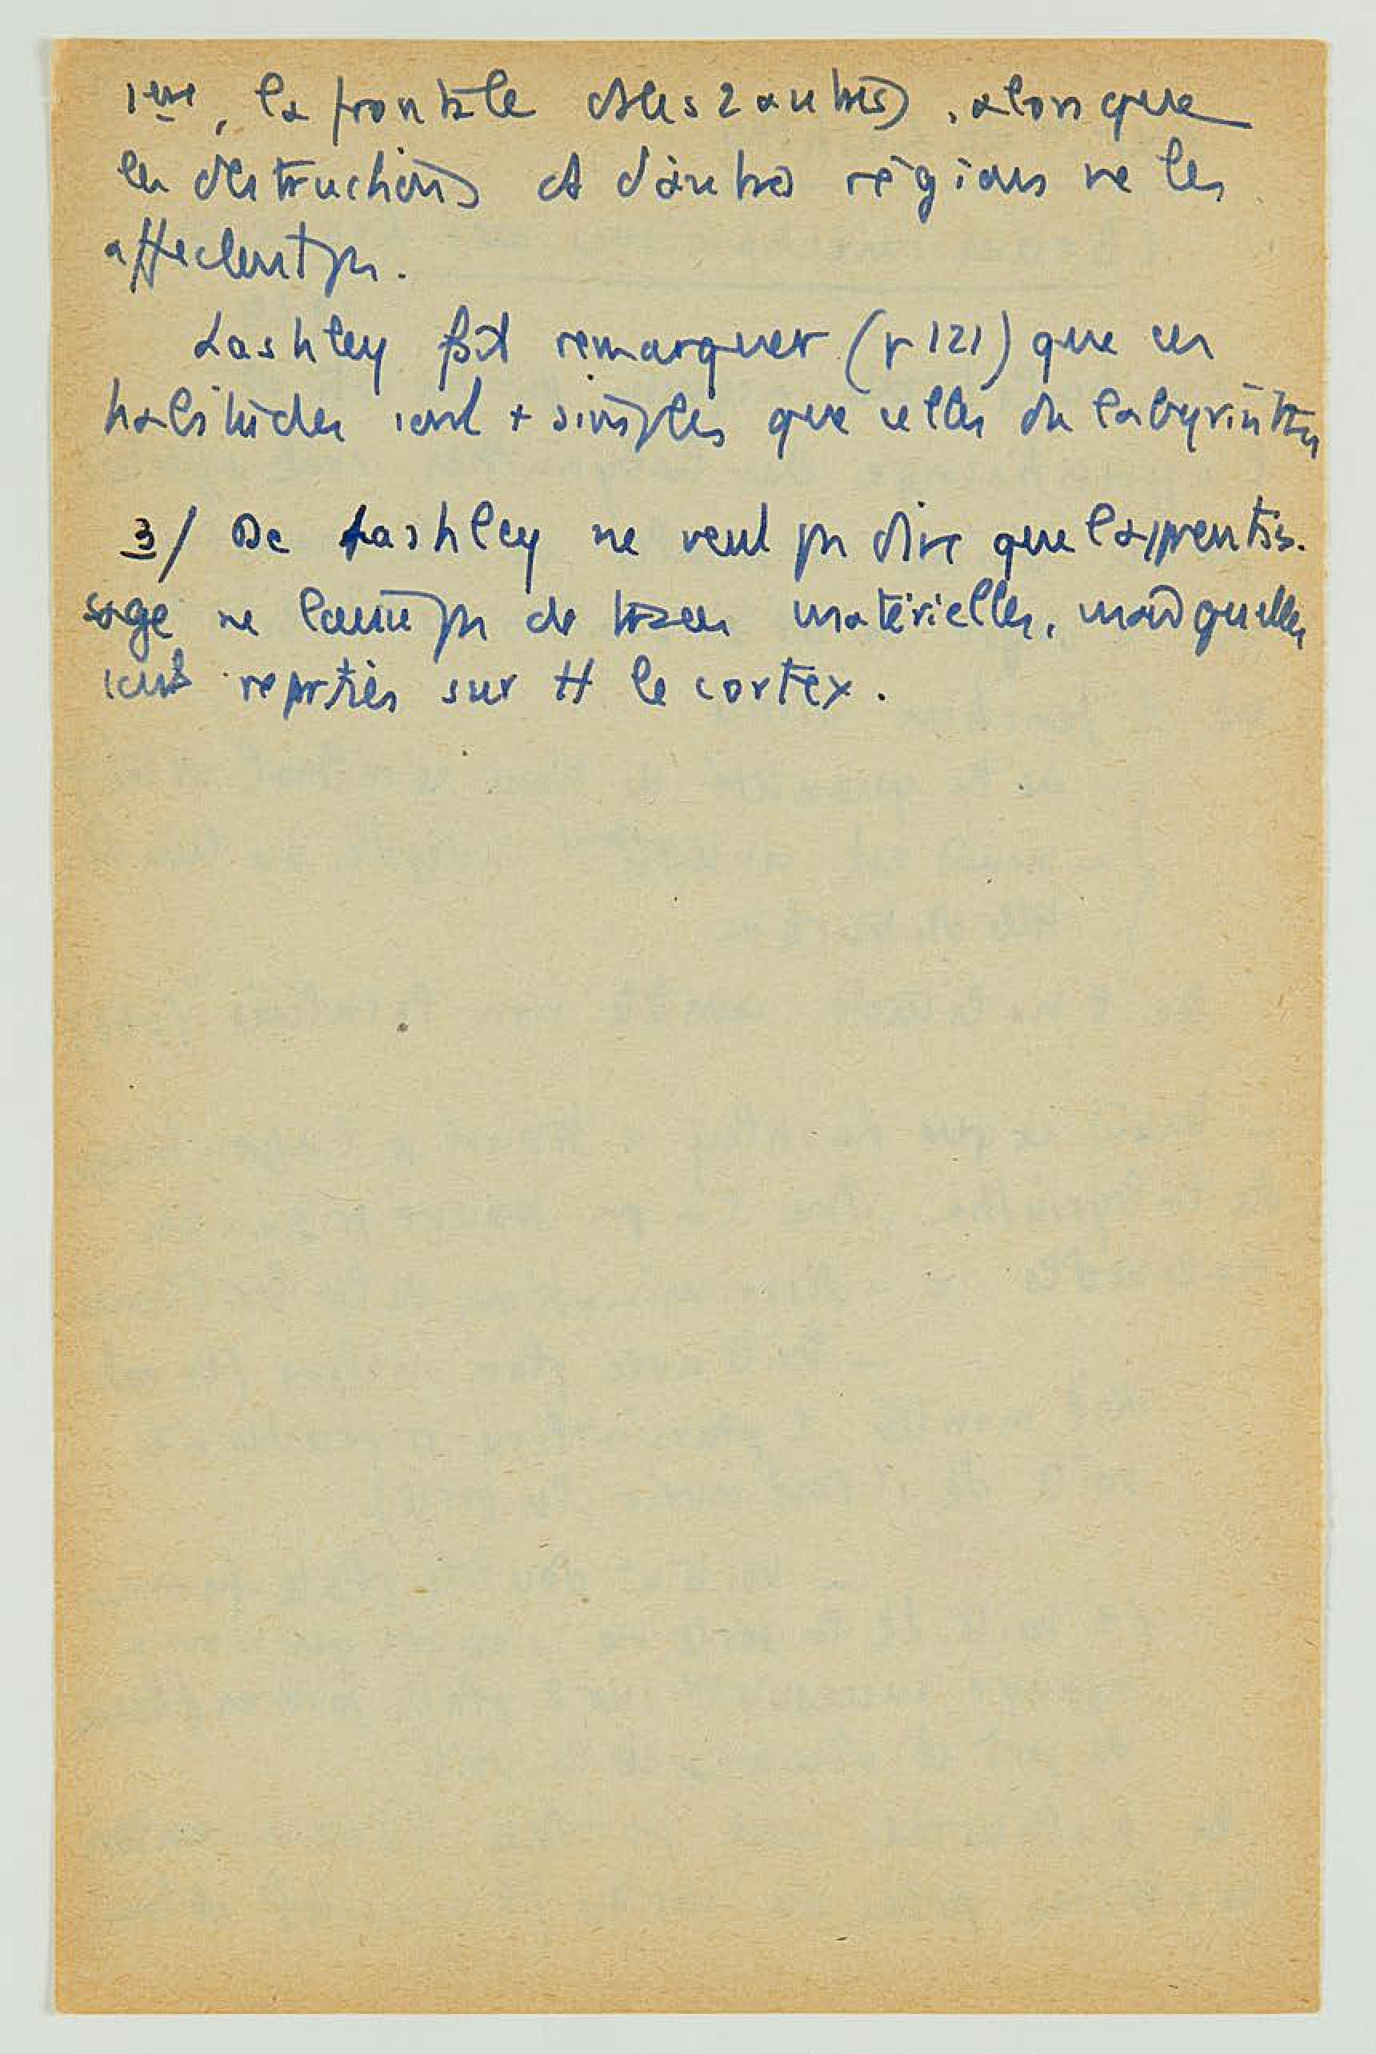 1ère, la frontale des 2 autres), alors que
les destructions d'autres régions ne les
affectent pas.
Lashley fait remarquer (p 121) que ces
habitudes sont + simples que celles du labyrinthe
3/ De Lashley ne veut pas dire que l'apprentis-
sage ne laisse pas de traces matérielles, mais qu'elles
sont réparties sur tt le cortex.